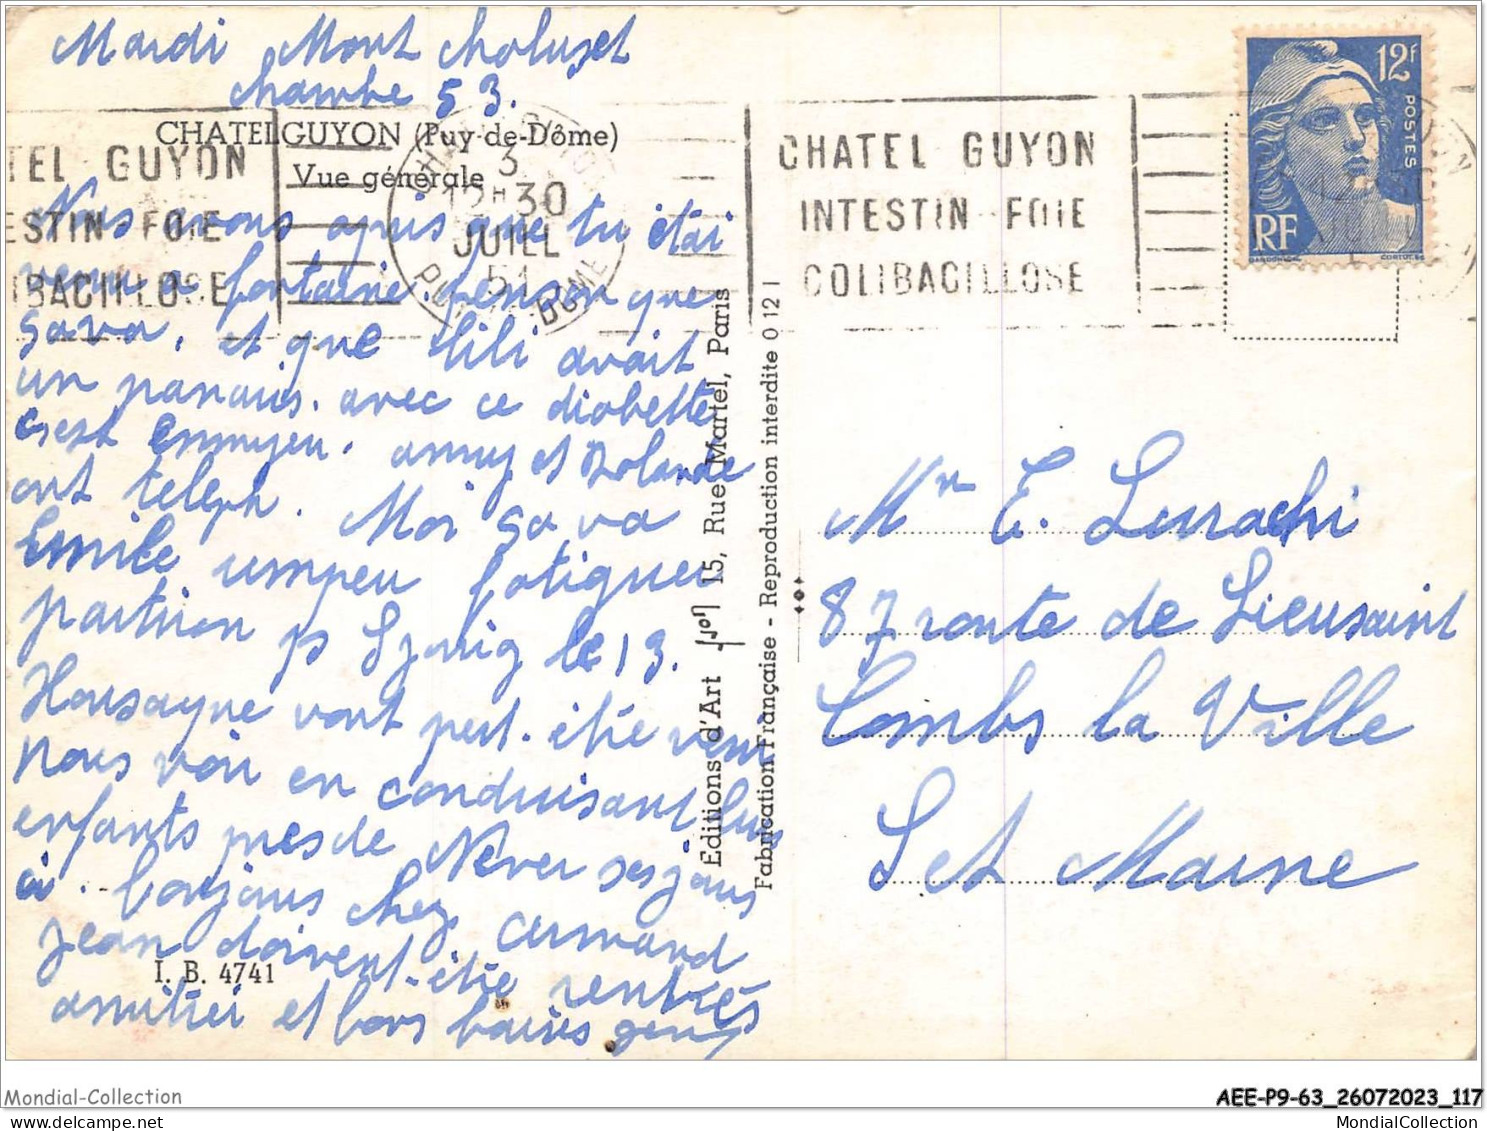 Mardi Mont Choluset
Chambe 53.
CHATELGUYON (Puy-de-Dôme)
Vue générale
TEL GUYON
ESTIN FOIE
IBACILLOSE
3
12H30
JUILL
51
PUY DOME
CHATEL GUYON
INTESTIN FOIE
COLIBACILLOSE
12F
POSTES
RF
Nous avons apris que tu étai
venu a fontaine. Penson que
sava. et que lili avait
un panaris. avec ce diobette
c'est ennuyeu. anny et Rolande
ont teleph. Moi sa va
Emile umpeu fotiguer
partiron le 13.
Housayne vont peut. etre veni
nous voir en conduisant leurs
enfants pres de Never ses jours
ci. bonjours chez Armand
Jean doivent-être rentrés
amitiei et bons baisers
I. B. 4741
Editions d'Art Yvon 15, Rue Martel, Paris
Fabrication Française - Reproduction interdite 0 12 1
Mr E. Lurachi
87 route de Lieusaint
Combs la Ville
S et Marne
Mondial-Collection
AEE-P9-63_26072023_117
MondialCollection